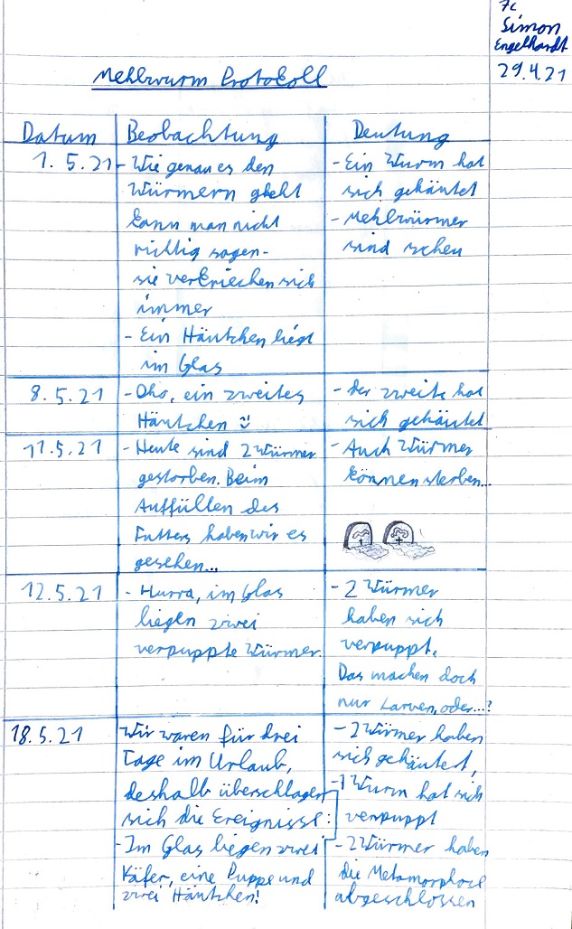 7c
Simon
Engelhardt
29.4.21
Mehlwurm Protokoll
Datum
Beobachtung
Deutung
1.5.21
- Wie genau es den
Würmern geht
kann man nicht
richtig sagen-
sie verkriechen sich
immer
- Ein Häutchen liegt
im Glas
- Ein Wurm hat
sich gehäutet
- Mehlwürmer
sind scheu
8.5.21
- Oho, ein zweites
Häutchen :)
- Der zweite hat
sich gehäutet
11.5.21
- Heute sind 2 Würmer
gestorben. Beim
Auffüllen des
Futters haben wir es
gesehen...
- Auch Würmer
können sterben...
12.5.21
- Hurra, im Glas
liegen zwei
verpuppte Würmer.
- 2 Würmer
haben sich
verpuppt.
Das machen doch
nur Larven, oder...?
18.5.21
Wir waren für drei
Tage im Urlaub,
deshalb überschlagen
sich die Ereignisse:
- Im Glas liegen zwei
Käfer, eine Puppe und
zwei Häutchen!
- 2 Würmer haben
sich gehäutet,
- 1 Wurm hat sich
verpuppt
- 2 Würmer haben
die Metamorphose
abgeschlossen